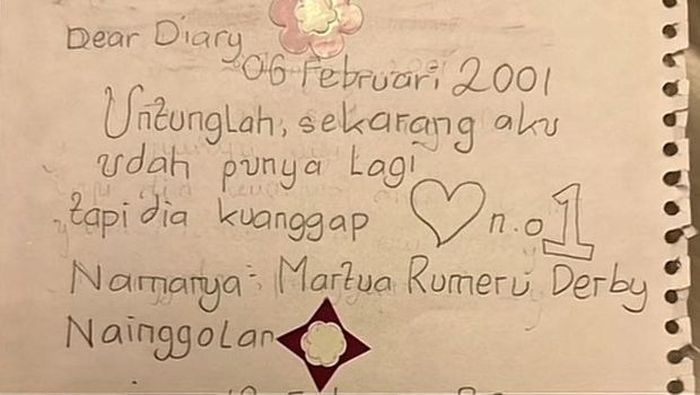 Dear Diary
06 Februari 2001
Untunglah, sekarang aku
udah punya lagi
tapi dia kuanggap n.o 1
Namanya: Martua Rumeru Derby
Nainggolan